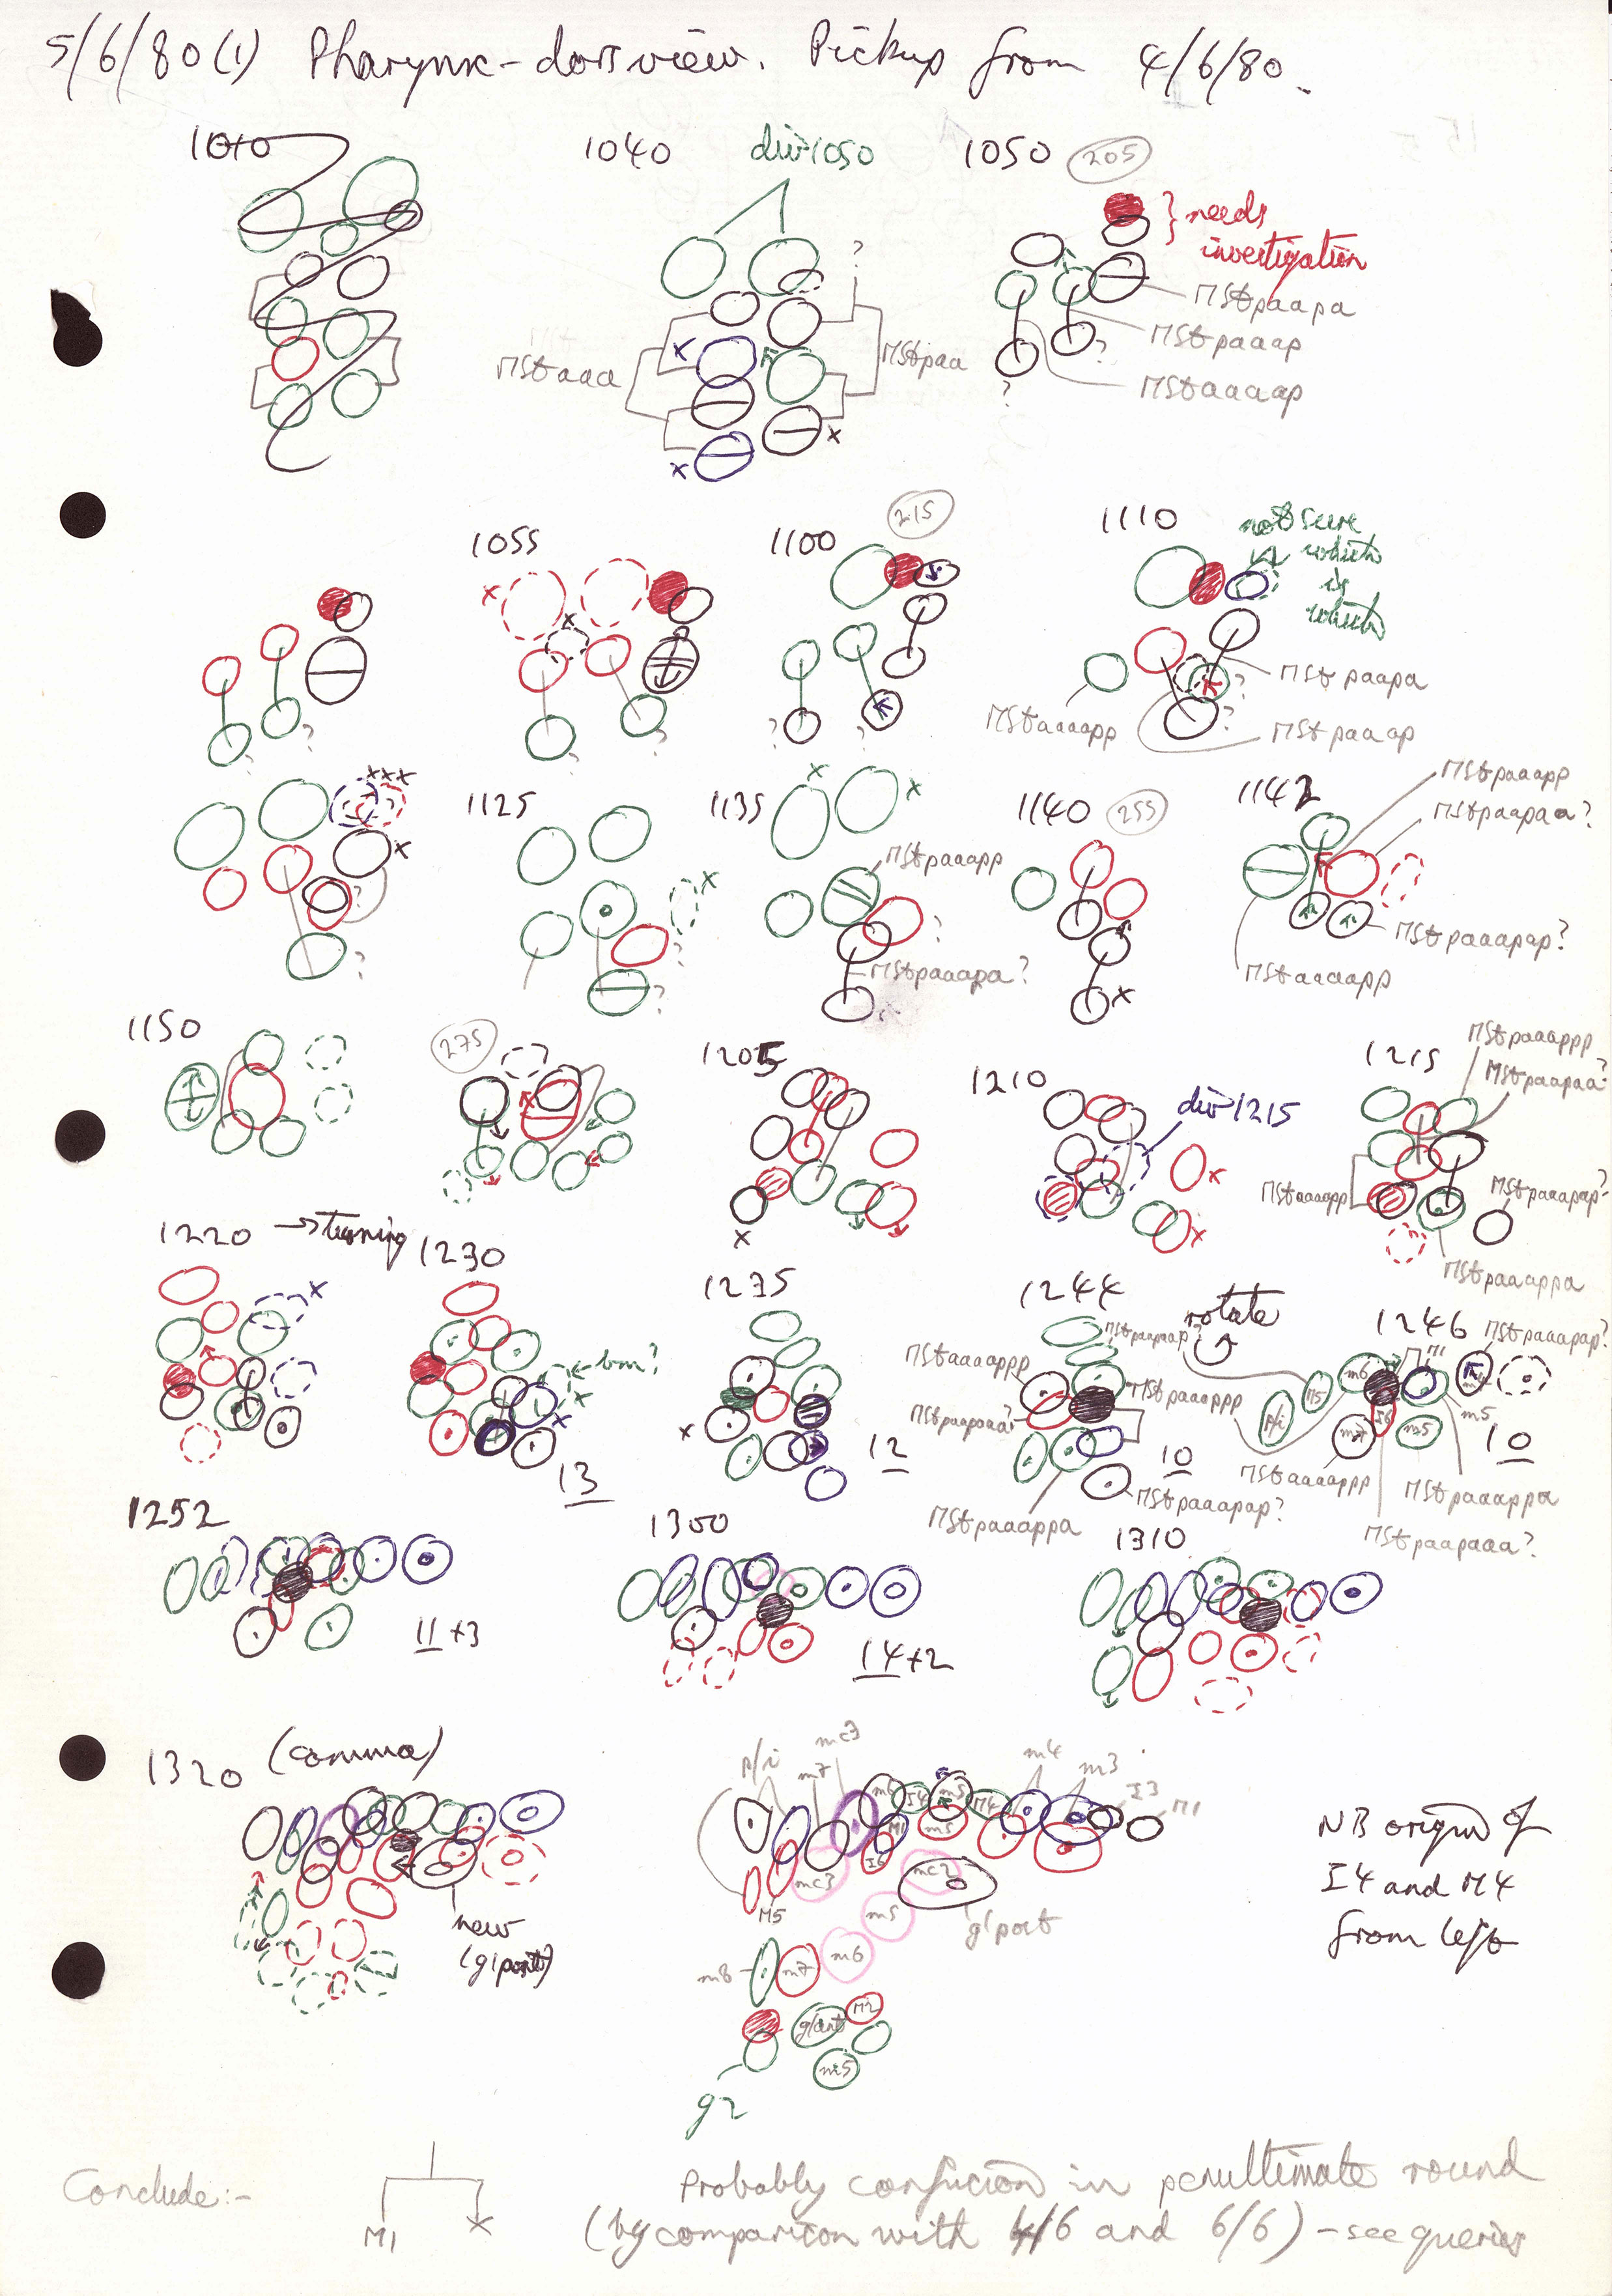 5/6/80 (1) Pharynx - dors view. Pickup from 4/6/80.
1040
div 1050
1050 205
} needs
investigation
?
MSt aaa
x
MSt paa
x
x
MSt paapa
MSt paaap
MSt aaaap
?
?
1055
1100 215
1110
not sure
which
is
which
x
x
?
?
?
?
?
?
?
?
MSt paapa
MSt aaaapp
MSt paaap
xxx
x
?
?
1125
x
?
?
1135
x
x
MSt paaapp
?
MSt paaapa?
1140 255
x
1142
MSt paaapp
MSt paapaa?
MSt paaapap?
MSt aaaapp
1150
275
1205
x
1210
div 1215
x
x
1215
MSt paaappp
MSt paapaa?
MSt aaaapp
MSt paaapap?
MSt paaappa
1220 → turning
x
1230
← bm?
x
x
13
1235
x
12
1244
MSt aaaappp
MSt paapaap?
MSt paaappp
MSt paapaaa?
10
MSt paaapap?
MSt paaappa
rotate
1246
MSt paaapap?
m6
M1
m4
M5
p/i
I6
m7
m5
m5
10
MSt aaaappp
MSt paaappa
MSt paapaaa?
1252
11+3
1300
14+2
1310
1320 (comma)
new
(g1 post)
p/i
m7
mc3
m6
I4
m5
M4
m4
m3
I3
M1
M1
m5
I6
mc3
mc2
M5
m5
g1 post
m8
m7
m6
g1 ant
M2
m5
g2
NB origin of
I4 and M4
from left
Conclude:-
M1
x
Probably confusion in penultimate round
(by comparison with 4/6 and 6/6) - see queries